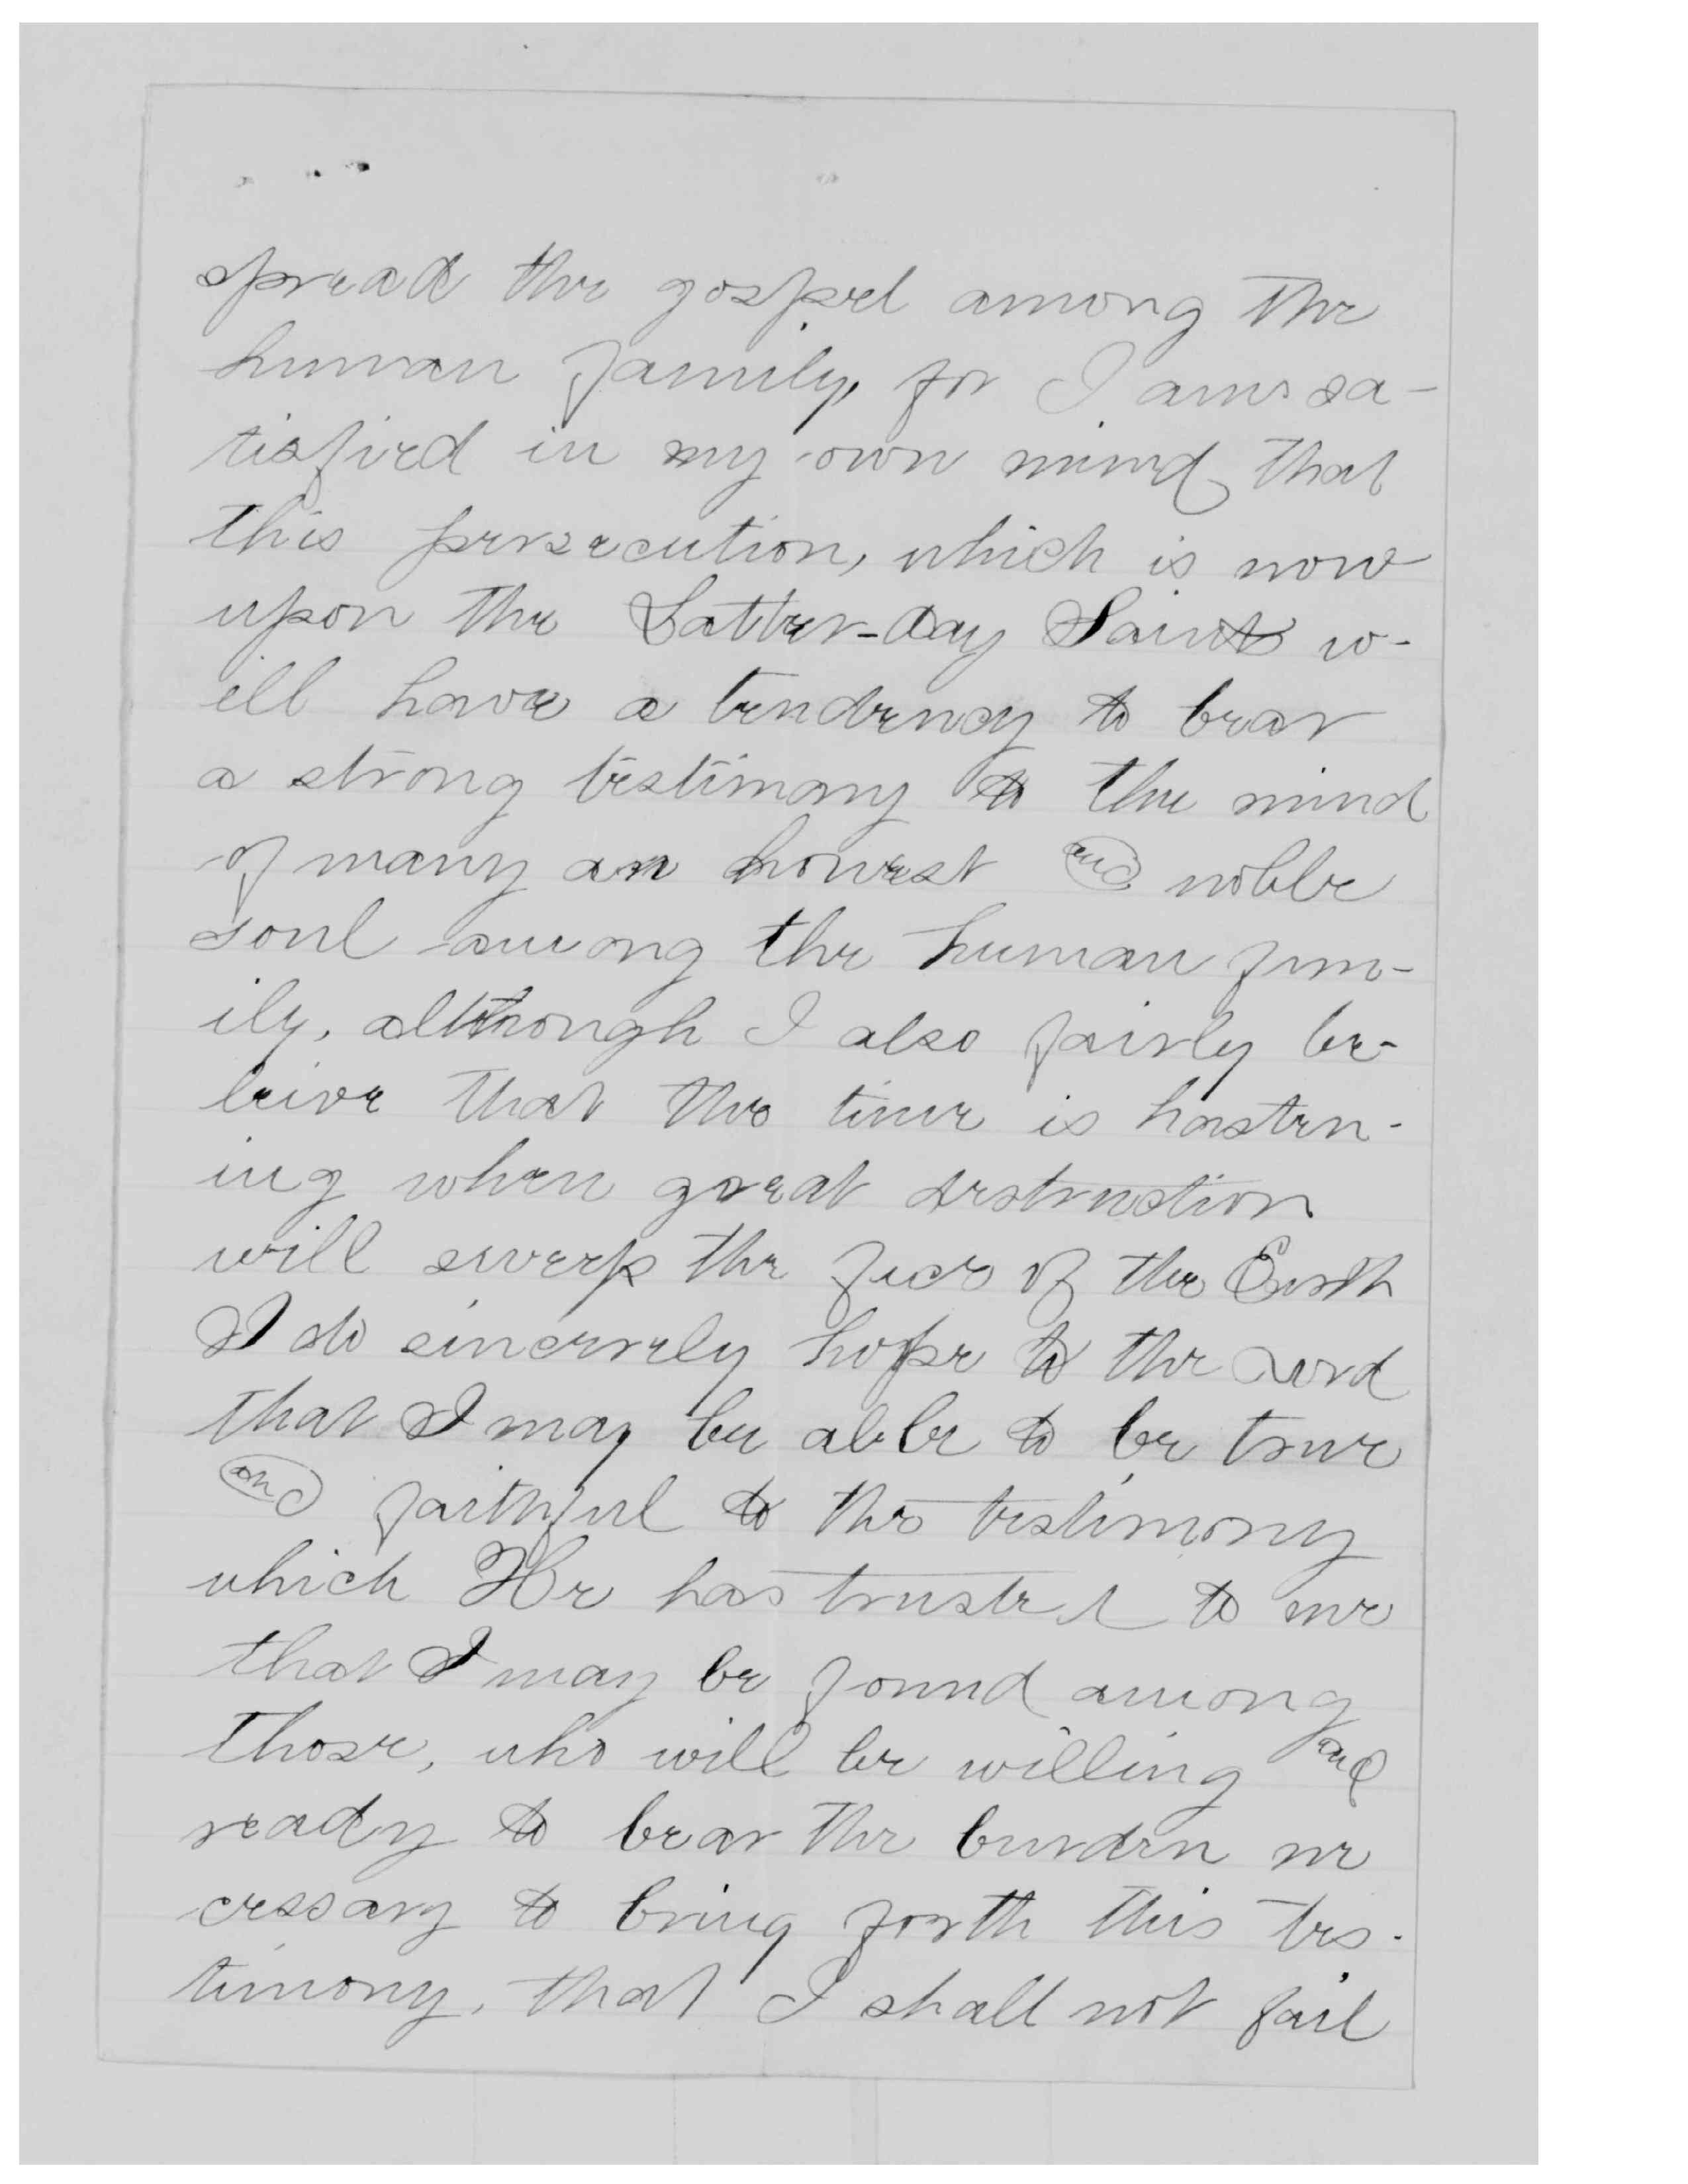 spread the gospel among the
human family, for I am sa-
tisfied in my own mind that
this persecution, which is now
upon the Latter-day Saints w-
ill have a tendency to bear
a strong testimony to the mind
of many an honest and noble
soul among the human fam-
ily, although I also fairly be-
leive that the time is hasten-
ing when great destruction
will sweep the face of the Earth
I do sincerely hope to the Lord
that I may be able to be true
and faithful to the testimony
which He has trusted to me
that I may be found among
those, who will be willing and
ready to bear the burden ne
cessary to bring forth this tes-
timony, that I shall not fail